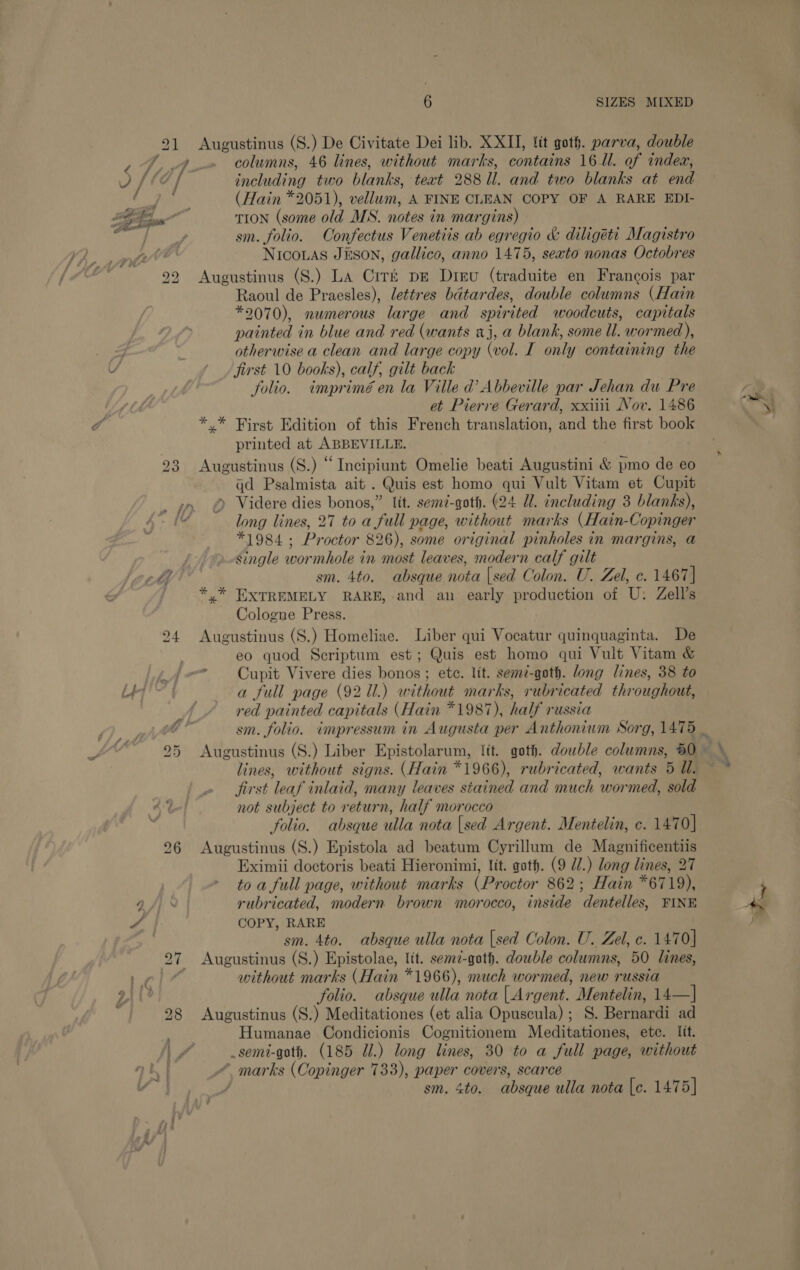 6 SIZES MIXED
21 Augustinus (S.) De Civitate Dei lib. XXII, lit goth. parva, double
columns, 46 lines, without marks, contains 16 ll. of index,
including two blanks, text 288 ll. and two blanks at end
(Hain *2051), vellum, A FINE CLEAN COPY OF A RARE EDI-
TION (some old MS. notes in margins)
sm. folio. Confectus Venetiis ab egregio & diligēti Magistro
NICOLAS JESON, gallico, anno 1475, sexto nonas Octobres
22 Augustinus (S.) LA CITÉ DE DIEU (traduite en François par
Raoul de Praesles), lettres bâtardes, double columns (Hain
*2070), numerous large and spirited woodcuts, capitals
painted in blue and red (wants aj, a blank, some ll. wormed),
otherwise a clean and large copy (vol. I only containing the
first 10 books), calf, gilt back
folio. imprimé en la Ville d'Abbeville par Jehan du Pre
et Pierre Gerard, xxiiii Nov. 1486
*** First Edition of this French translation, and the first book
printed at ABBEVILLE.
23 Augustinus (S.) “Incipiunt Omelie beati Augustini & pmo de eo
qd Psalmista ait . Quis est homo qui Vult Vitam et Cupit
Videre dies bonos,” lit. semi-goth. (24 ll. including 3 blanks),
long lines, 27 to a full page, without marks (Hain-Copinger
*1984 ; Proctor 826), some original pinholes in margins, a
single wormhole in most leaves, modern calf gilt
sm. 4to. absque nota [sed Colon. U. Zel, c. 1467]
*** EXTREMELY RARE, and an early production of U. Zell's
Cologne Press.
24 Augustinus (S.) Homeliae. Liber qui Vocatur quinquaginta. De
eo quod Scriptum est ; Quis est homo qui Vult Vitam &
Cupit Vivere dies bonos ; etc. lit. semi-goth. long lines, 38 to
a full page (92 ll.) without marks, rubricated throughout,
red painted capitals (Hain *1987), half russia
sm. folio. impressum in Augusta per Anthonium Sorg, 1475
25 Augustinus (S.) Liber Epistolarum, lit. goth. double columns, 50
lines, without signs. (Hain *1966), rubricated, wants 5 ll.
first leaf inlaid, many leaves stained and much wormed, sold
not subject to return, half morocco
folio. absque ulla nota [sed Argent. Mentelin, c. 1470]
26 Augustinus (S.) Epistola ad beatum Cyrillum de Magnificentiis
Eximii doctoris beati Hieronimi, lit. goth. (9 ll.) long lines, 27
to a full page, without marks (Proctor 862 ; Hain *6719),
rubricated, modern brown morocco, inside dentelles, FINE
COPY, RARE
sm. 4to. absque ulla nota [sed Colon. U. Zel, c. 1470]
27 Augustinus (S.) Epistolae, lit. semi-goth. double columns, 50 lines,
without marks (Hain *1966), much wormed, new russia
folio. absque ulla nota [Argent. Mentelin, 14—]
28 Augustinus (S.) Meditationes (et alia Opuscula) ; S. Bernardi ad
Humanae Condicionis Cognitionem Meditationes, etc. lit.
semi-goth. (185 ll.) long lines, 30 to a full page, without
marks (Copinger 733), paper covers, scarce
sm. 4to. absque ulla nota [c. 1475]